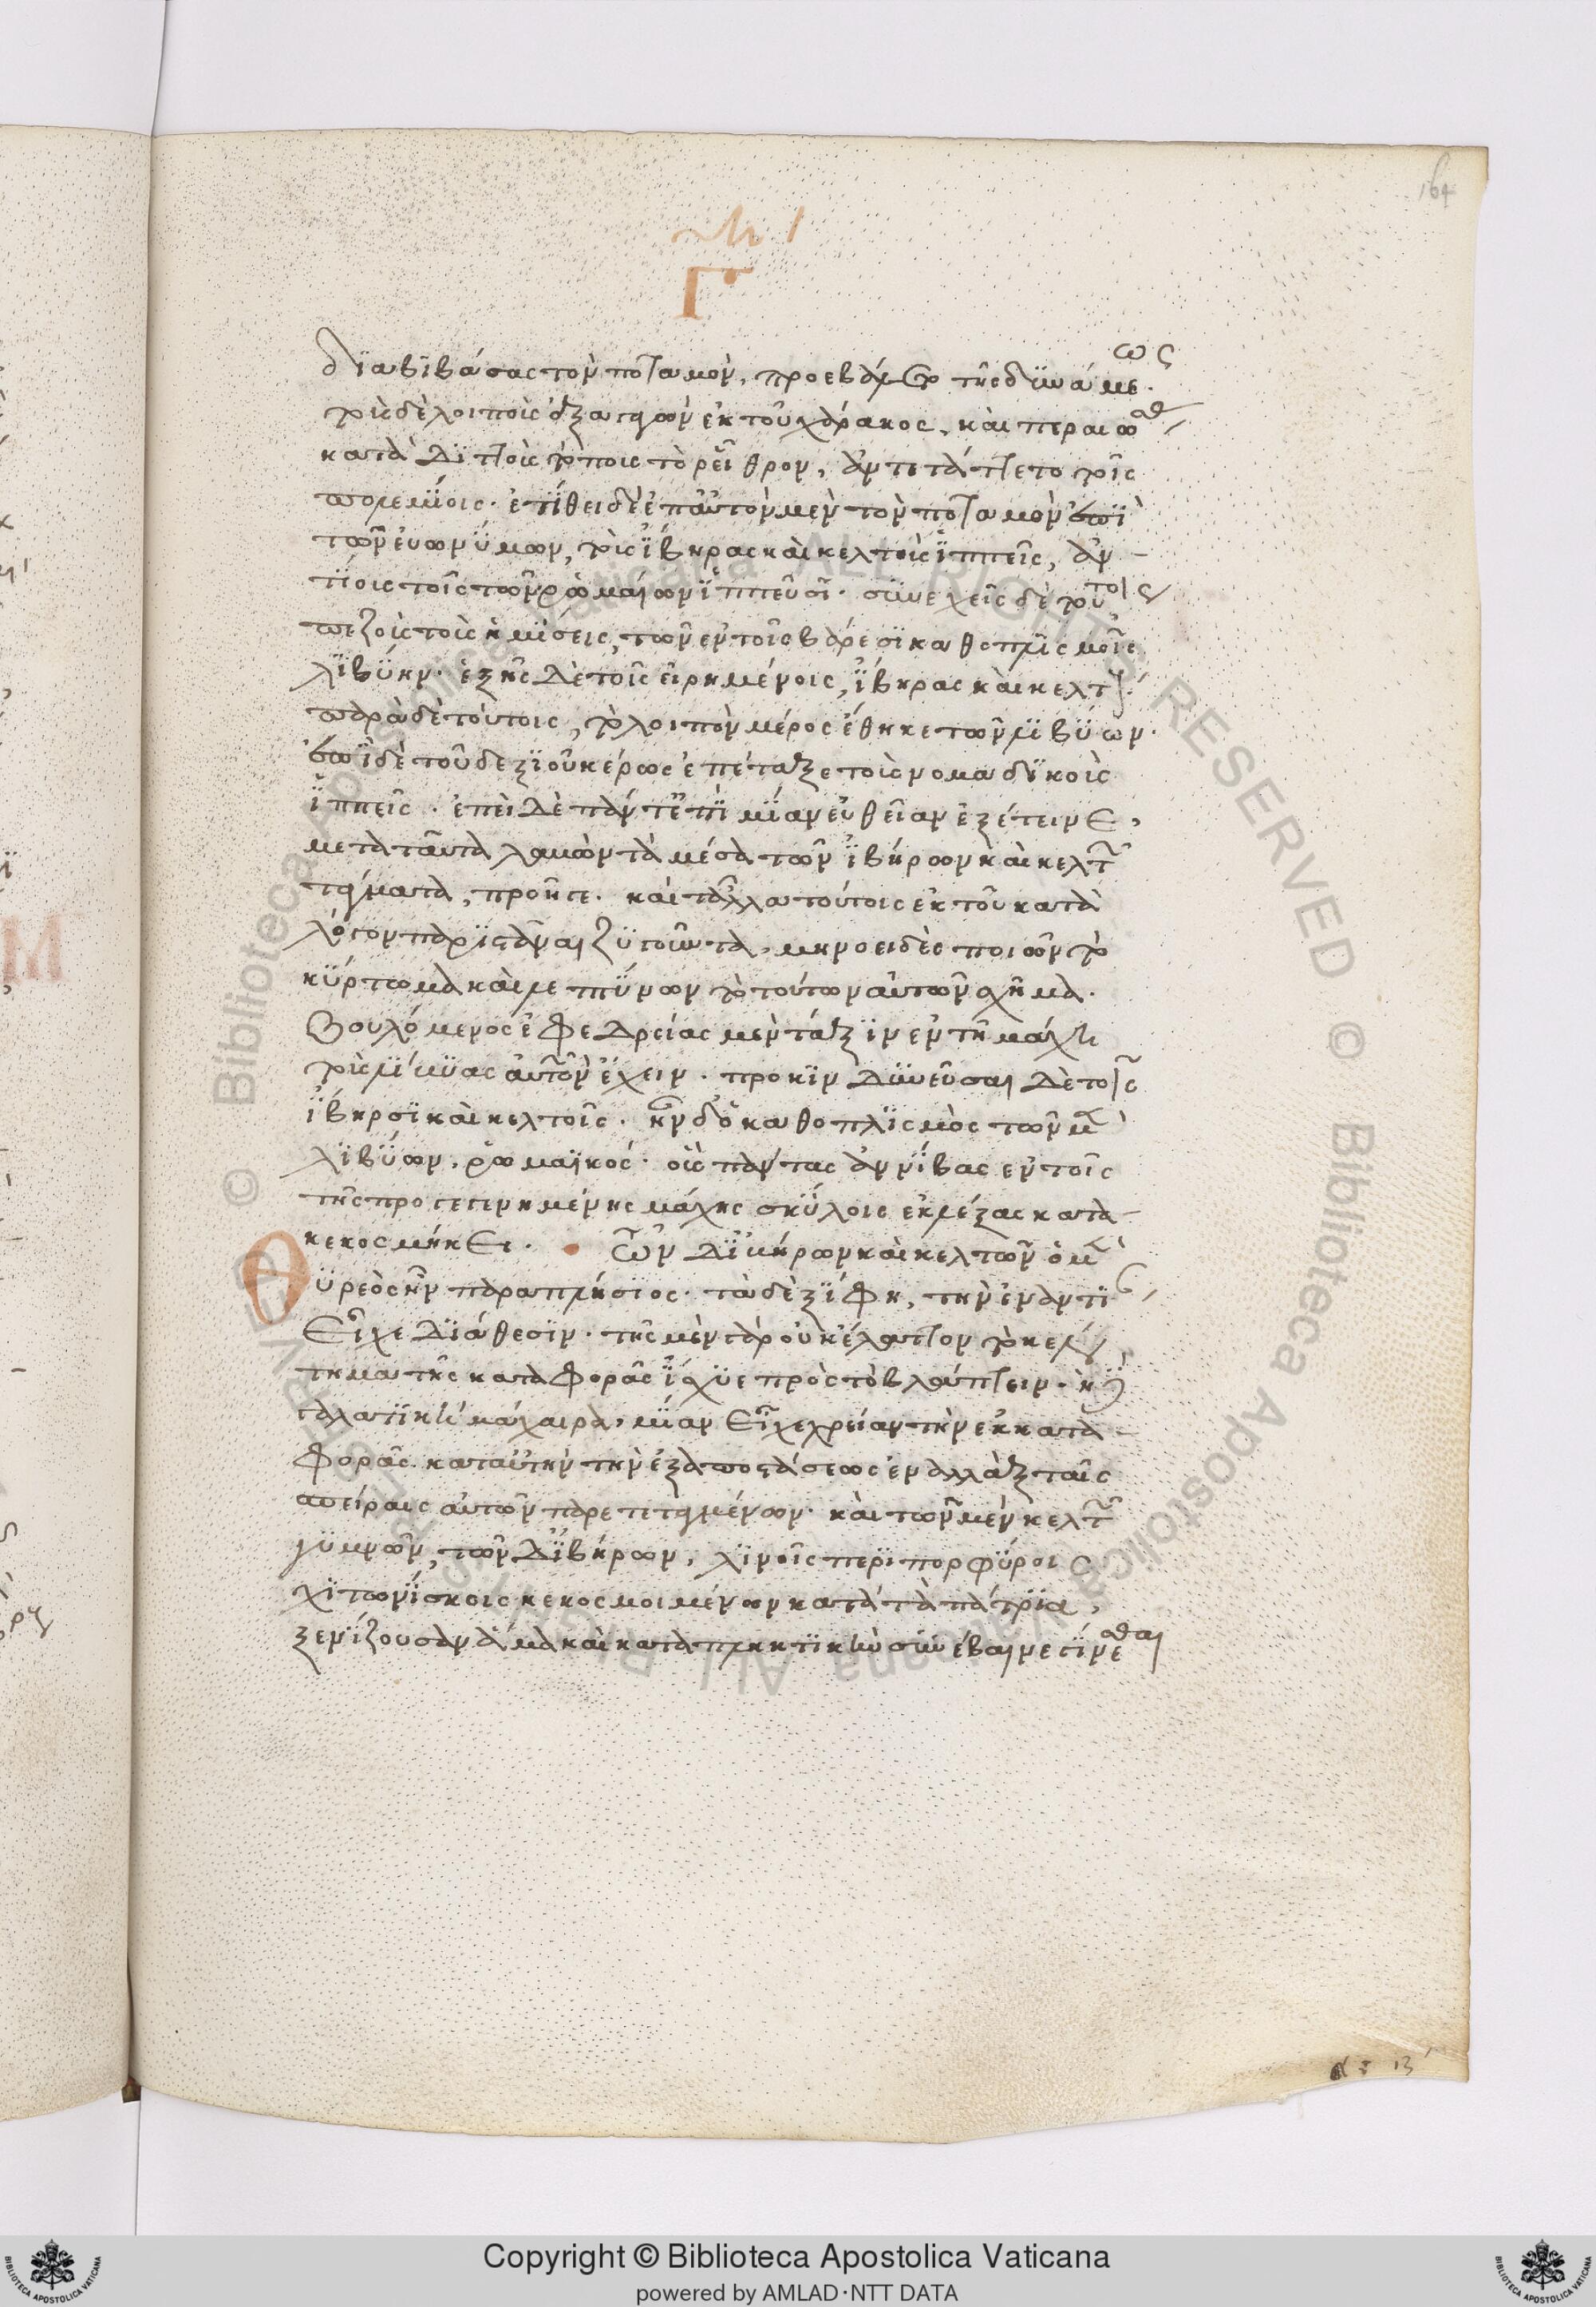 164
Γ
διαβιβάσας τὸν ποταμὸν, προεβάλετο τῆς δυνάμεως.
τοὺς δὲ λοιποὺς ἐξαγαγὼν ἐκ τοῦ χάρακος, καὶ περαιωσθ
κατὰ διττοὺς τόπους τὸ ρεῖθρον, ἀντετάττετο τοῖς
πολεμίοις. ἐτίθει δὲ ἐπ' αὐτὸν μὲν τὸν ποταμὸν ἐπὶ
τῶν εὐωνύμων, τοὺς ἴβηρας καὶ κελτοὺς ἱππεῖς, ἀν
τίους τοῖς τῶν ῥωμαίων ἱππεῦσι. συνεχεῖς δὲ τούτοις
πεζοὺς τοὺς ἡμίσεις, τῶν ἐν τοῖς βαρέσι καθοπλισμοῖς
λιβύων. ἑξῆς δὲ τοῖς εἰρημένοις, ἴβηρας καὶ κελτούς.
παρὰ δὲ τούτοις, τὸ λοιπὸν μέρος ἔθηκε τῶν λιβύων.
ἐπὶ δὲ τοῦ δεξιοῦ κέρως ἐπέταξε τοὺς νομαδικοὺς
ἱππεῖς. ἐπεὶ δὲ πάντ' ἐπὶ μίαν εὐθεῖαν ἐξέτεινε,
μετὰ ταῦτα λαμβὼν τὰ μέσα τῶν ἰβήρων καὶ κελτῶν
τάγματα, προῆγε. καὶ τἄλλα τούτοις ἐκ τοῦ κατὰ
λόγον παρίσταναι ζυγοῦντα, μηνοειδὲς ποιῶν τὸ
κύρτωμα καὶ λεπτύνων τὸ τούτων αὐτῶν σχῆμα.
βουλόμενος ἐφεδρείας μὲν τάξιν ἐν τῇ μάχῃ
τοὺς λίβυας αὐτῶν ἔχειν. προκινδυνεῦσαι δὲ τοῖς
ἴβηρσι καὶ κελτοῖς. ἦν δ' ὁ καθοπλισμὸς τῶν μὲν
λιβύων, ῥωμαϊκός. οὓς πάντας ἀννίβας ἐν τοῖς
τῆς προγεγενημένης μάχης σκύλοις ἐκλέξας κατα
κεκοσμήκει. τῶν δ' ἰβήρων καὶ κελτῶν ὁ μὲν
Θυρεὸς ἦν παραπλήσιος. τὰ δὲ ξίφη, τὴν ἐναντίαν
εἶχε διάθεσιν. τῆς μὲν γὰρ οὐκ ἔλαττον τὸ κέν
τημα τῆς καταφορᾶς ἴσχυε πρὸς τὸ βλάπτειν. ἡ δὲ
γαλατικὴ μάχαιρα, μίαν εἶχε χρείαν τὴν ἐκ κατα
φορᾶς. καὶ ταύτην τὴν ἐξ ἀποστάσεως ἐναλλὰξ ταῖς
σπείραις αὐτῶν παρατεταγμένων. καὶ τῶν μὲν κελτῶν
γυμνῶν, τῶν δ' ἰβήρων, λινοῖς περιπορφύροις
χιτωνίσκοις κεκοσμοιμένων κατὰ τὰ πάτρια,
ξενίζουσαν ἅμα καὶ καταπληκτικὴν συνέβαινε γίνεσθαι